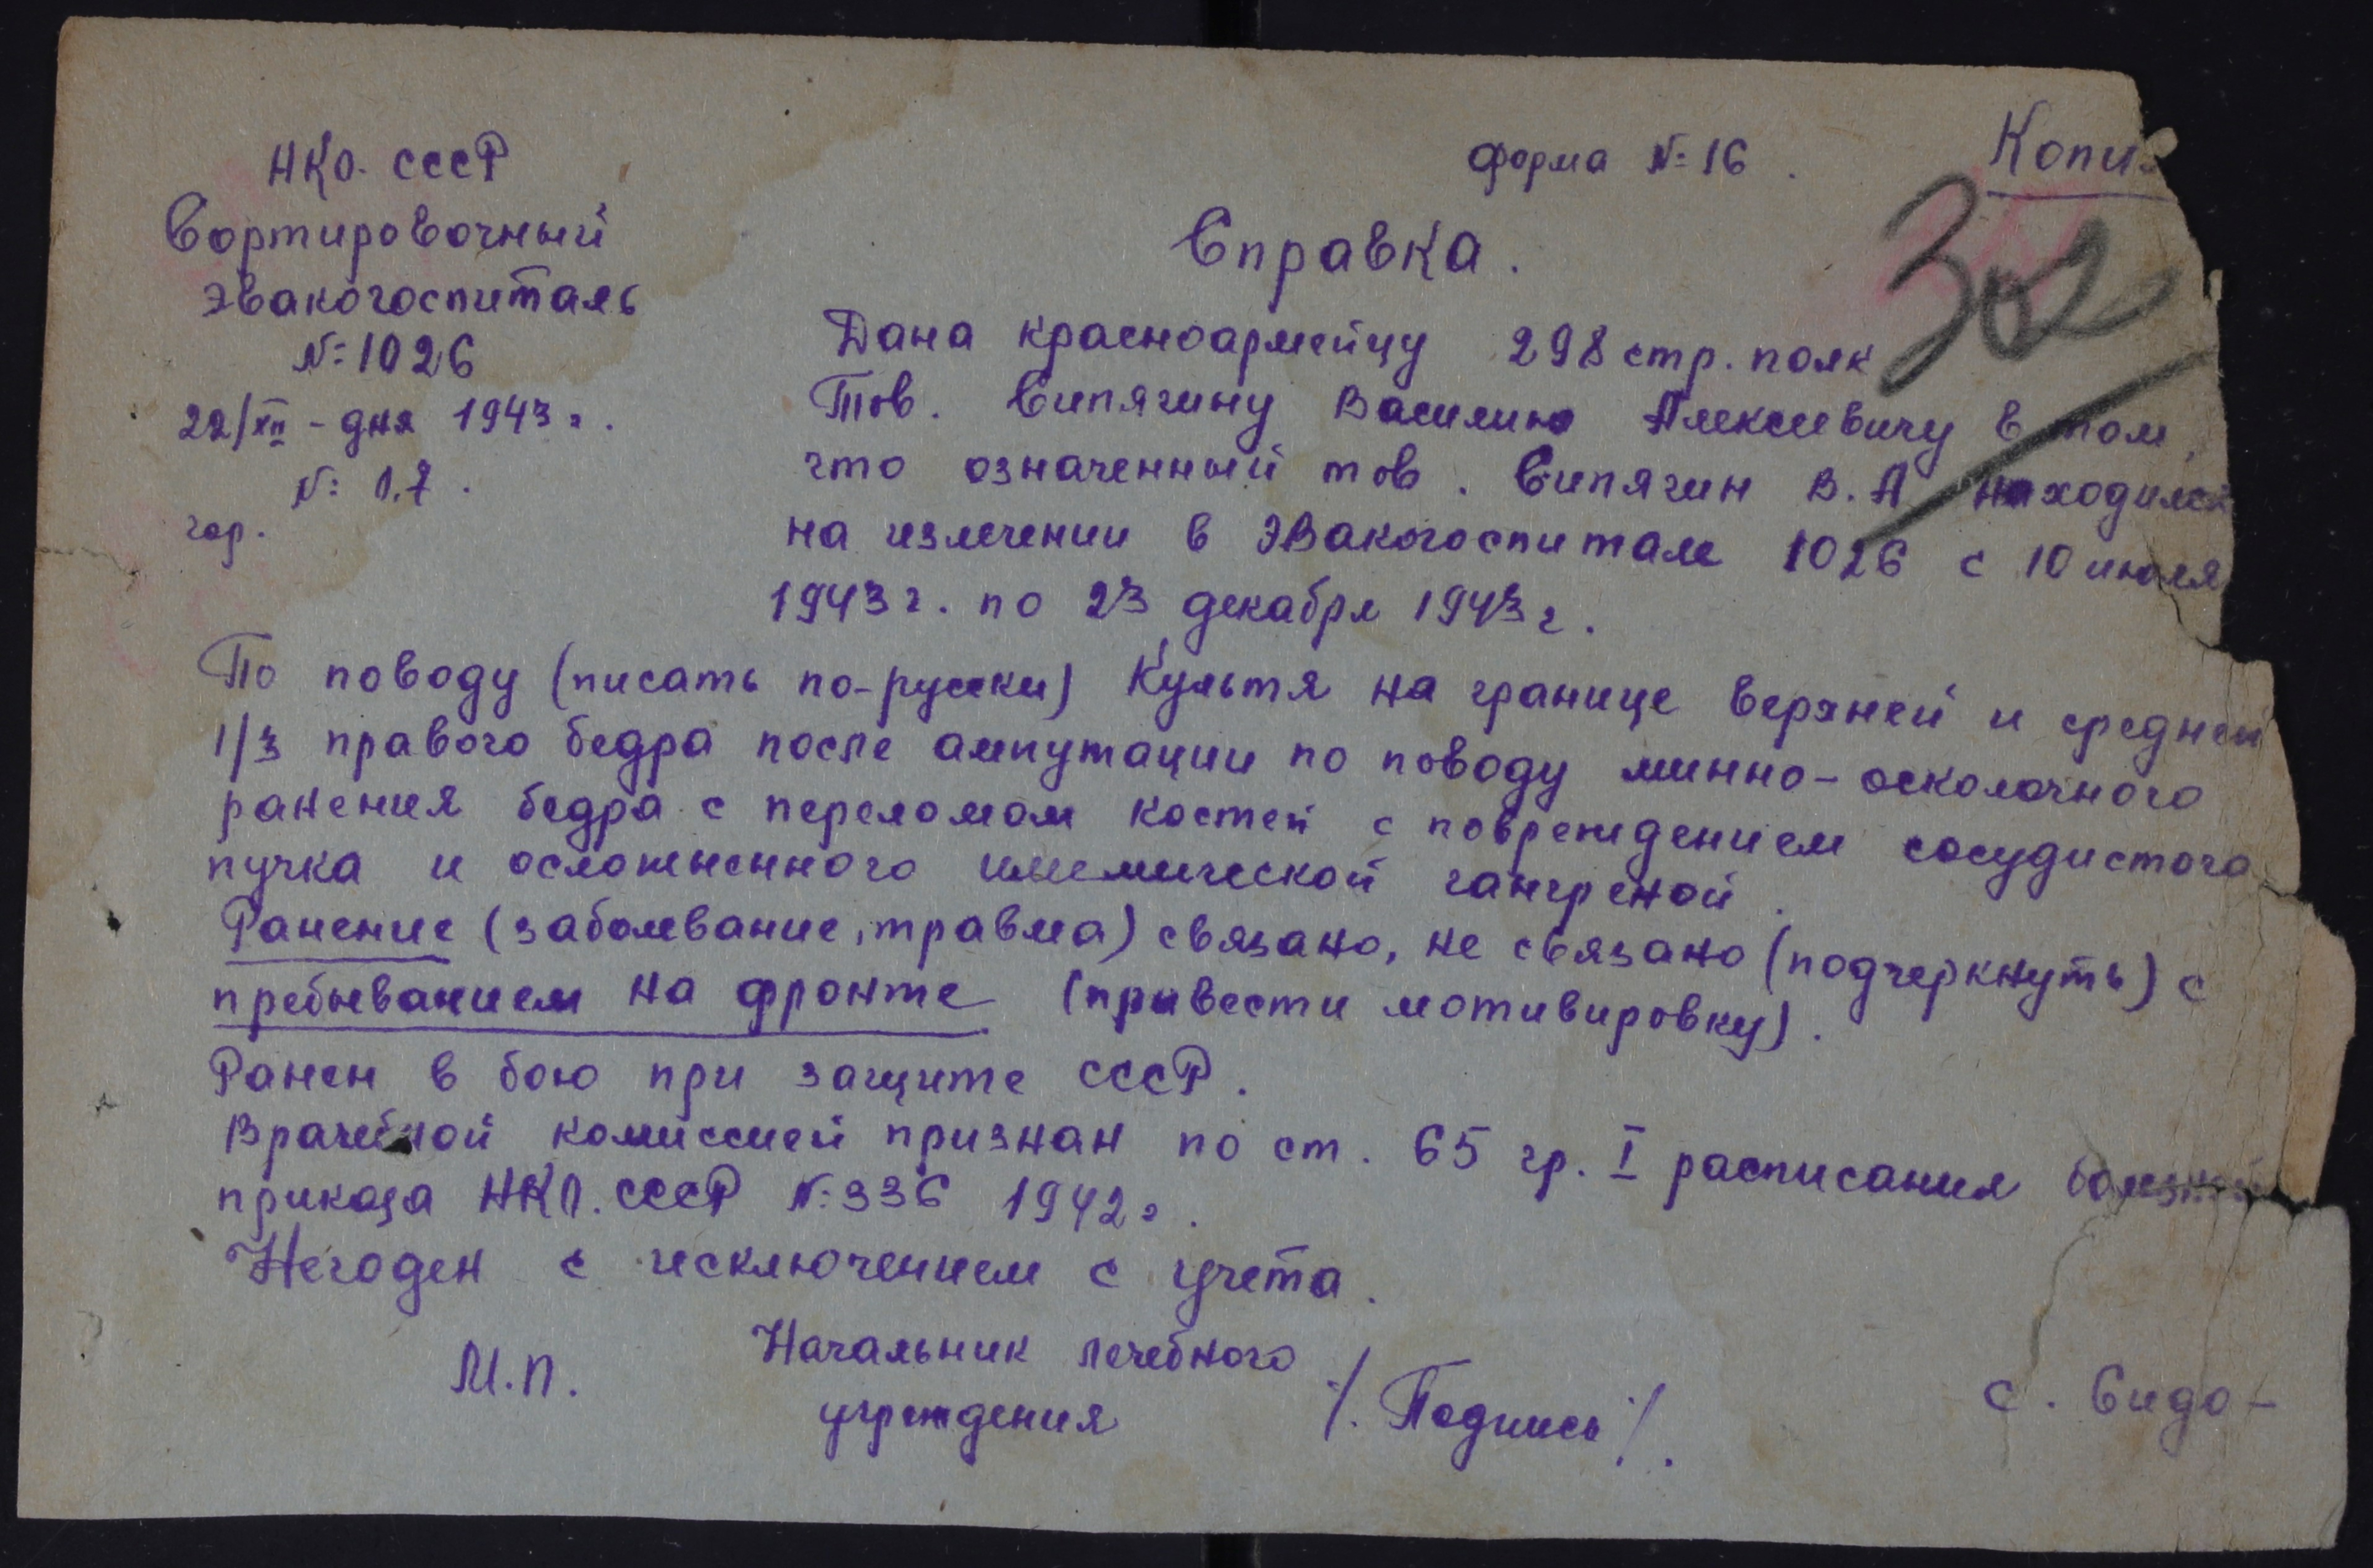 НКО. СССР
Сортировочный
эвакогоспиталь
№ 1026
22/XII - дня 1943 г.
№ 0.7.
гор.
форма № 16.
Копия
302
Справка.
Дана красноармейцу 298 стр. полк
Тов. Сипягину Василию Алексеевичу в том,
что означенный тов. Сипягин В. А. находился
на излечении в Эвакогоспитале 1026 с 10 июля
1943 г. по 23 декабря 1943 г.
По поводу (писать по-русски) Культя на границе верхней и средней
1/3 правого бедра после ампутации по поводу минно-осколочного
ранения бедра с переломом костей с повреждением сосудистого
пучка и осложненного ишемической гангреной.
Ранение (заболевание, травма) связано, не связано (подчеркнуть) с
пребыванием на фронте (привести мотивировку).
Ранен в бою при защите СССР.
Врачебной комиссией признан по ст. 65 гр. I расписания болезней
приказа НКО. СССР № 336 1942 г.
Негоден с исключением с учета.
М.П.
Начальник лечебного
учреждения
/. Подпись /.
с. Сидо-